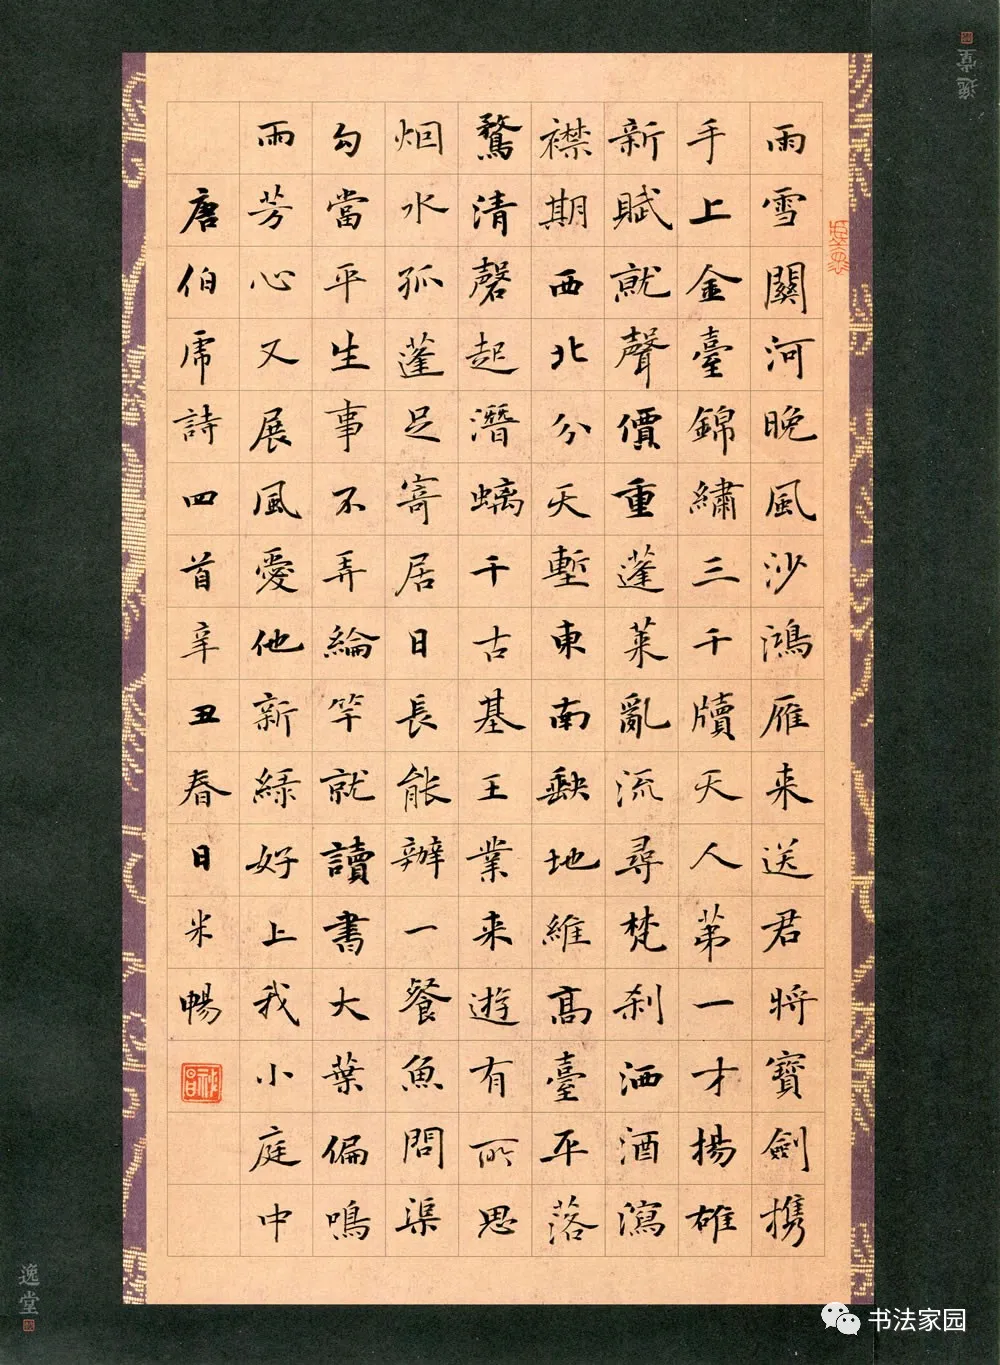 雨雪關河晚風沙鴻雁来送君将寶劍携
手上金臺錦繡三千牘天人第一才揚雄
新賦就聲價重蓬莱亂流尋梵刹洒酒瀉
襟期西北分天塹東南缺地維高臺平落
鶩清磬起潛螭千古基王業来遊有所思
烟水孤蓬足寄居日長能辦一餐魚問渠
勾當平生事不弄綸竿就讀書大葉偏鳴
雨芳心又展風愛他新緑好上我小庭中
唐伯虎詩四首辛丑春日米暢
逸堂
逸堂
书法家园